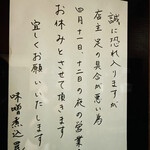 誠に恐れ入りますが
店主 足の具合が悪い為
四月十一日、十二日の夜の営業
お休みとさせて頂きます
宜しくお願いいたします
味噌煮込